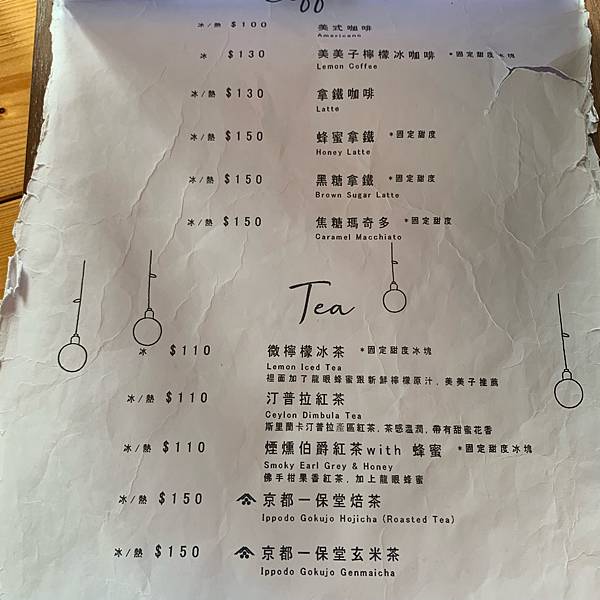 冰/熱 $100 美式咖啡
Americano
冰 $130 美美子檸檬冰咖啡 *固定甜度冰塊
Lemon Coffee
冰/熱 $130 拿鐵咖啡
Latte
冰/熱 $150 蜂蜜拿鐵 *固定甜度
Honey Latte
冰/熱 $150 黑糖拿鐵 *固定甜度
Brown Sugar Latte
冰/熱 $150 焦糖瑪奇多 *固定甜度
Caramel Macchiato
Tea
冰 $110 微檸檬冰茶 *固定甜度冰塊
Lemon Iced Tea
裡面加了龍眼蜂蜜跟新鮮檸檬原汁, 美美子推薦
冰/熱 $110 汀普拉紅茶
Ceylon Dimbula Tea
斯里蘭卡汀普拉產區紅茶, 茶感溫潤, 帶有甜蜜花香
冰/熱 $110 煙燻伯爵紅茶with 蜂蜜 *固定甜度冰塊
Smoky Earl Grey & Honey
佛手柑果香紅茶, 加上龍眼蜂蜜
冰/熱 $150 京都一保堂焙茶
Ippodo Gokujo Hojicha (Roasted Tea)
冰/熱 $150 京都一保堂玄米茶
Ippodo Gokujo Genmaicha